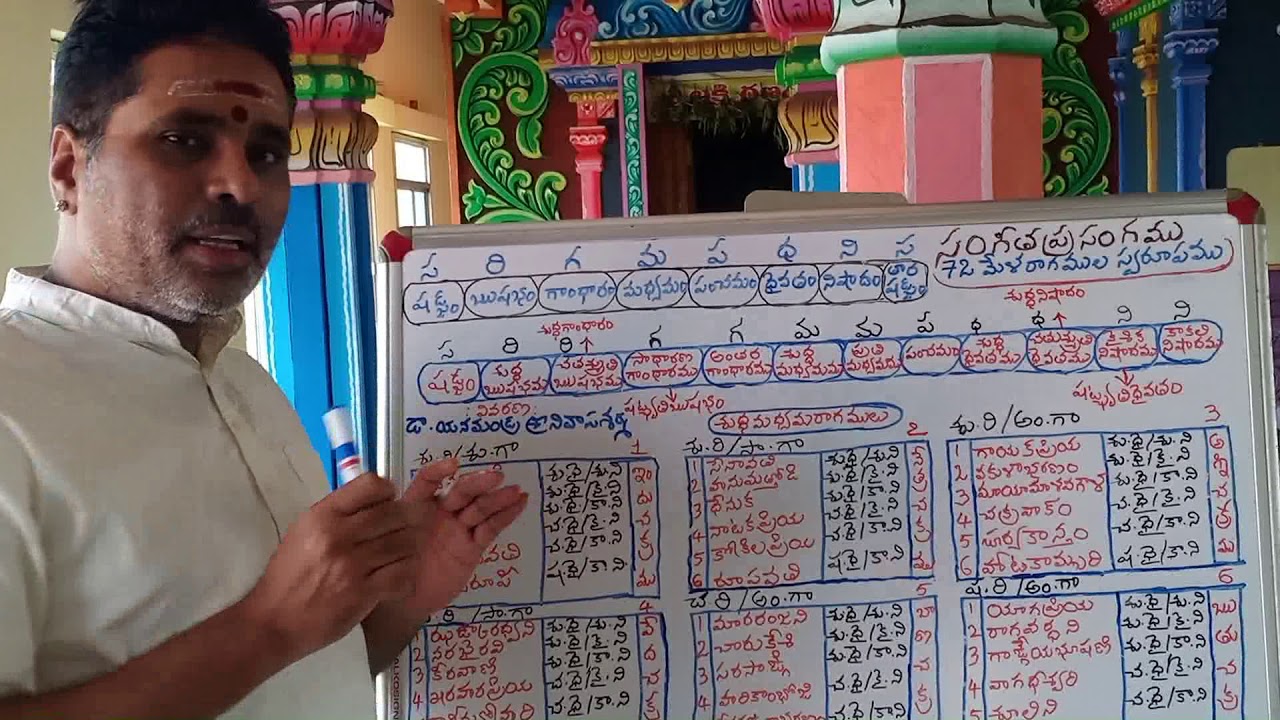 స రి గ మ ప ధ ని స
సంగీతప్రసంగము
72 మేళరాగముల స్వరూపము
షడ్జం ఋషభం గాంధారం మధ్యమం పంచమం దైవతం నిషాదం తార షడ్జం
శుద్ధగాంధారం
శుద్ధనిషాదం
స రి రి గ గ మ మ ప ధ ధ ని ని
షడ్జం శుద్ధ ఋషభము చతుశ్శ్రుతి ఋషభము సాధారణ గాంధారము అంతర గాంధారము శుద్ధ మధ్యమము ప్రతి మధ్యమము పంచమం శుద్ధ దైవతము చతుశ్శ్రుతి దైవతము కైశిక నిషాదము కాకలి నిషాదము
షట్చ్యుతిఋషభం
షట్చ్యుతిదైవతం
వివరణ:
డా. యనమంద్ర శ్రీనివాసశర్మ
శుద్ధమధ్యమరాగములు
శు.రి/శు.గా 1
శు.దై/శు.ని
శు.దై/కై.ని
శు.దై/కా.ని
చ.దై/కై.ని
చ.దై/కా.ని
ష.దై/కా.ని
ఇం
దు
చ
క్ర
ము
శు.రి/సా.గా 2
1 సేనావతి శు.దై/శు.ని నే
2 హనుమతోడి శు.దై/కై.ని త్ర
3 ధేనుక శు.దై/కా.ని చ
4 నాటకప్రియ చ.దై/కై.ని క్ర
5 కోకిలప్రియ చ.దై/కా.ని ము
6 రూపవతి ష.దై/కా.ని
శు.రి/అం.గా 3
1 గాయకప్రియ శు.దై/శు.ని అ
2 వకుళాభరణం శు.దై/కై.ని గ్ని
3 మాయామాళవగౌళ శు.దై/కా.ని చ
4 చక్రవాకం చ.దై/కై.ని క్ర
5 సూర్యకాన్తం చ.దై/కా.ని ము
6 హాటకాంబరి ష.దై/కా.ని
రి/సా.గా 4
1 ఝంకారధ్వని శు.దై/శు.ని వే
2 నఠభైరవి శు.దై/కై.ని ద
3 కీరవాణి శు.దై/కా.ని చ
4 ఖరహరప్రియ చ.దై/కై.ని క్ర
చ.దై/కా.ని
చ.రి/అం.గా 5
1 మారరంజని శు.దై/శు.ని బా
2 చారుకేశి శు.దై/కై.ని ణ
3 సరసాంగి శు.దై/కా.ని చ
4 హరికాంభోజి చ.దై/కై.ని క్ర
చ.దై/కా.ని
ష.రి/అం.గా 6
1 యాగప్రియ శు.దై/శు.ని ఋ
2 రాగవర్ధని శు.దై/కై.ని తు
3 గాంగేయభూషణి శు.దై/కా.ని చ
4 వాగధీశ్వరి చ.దై/కై.ని క్ర
5 శూలిని చ.దై/కా.ని